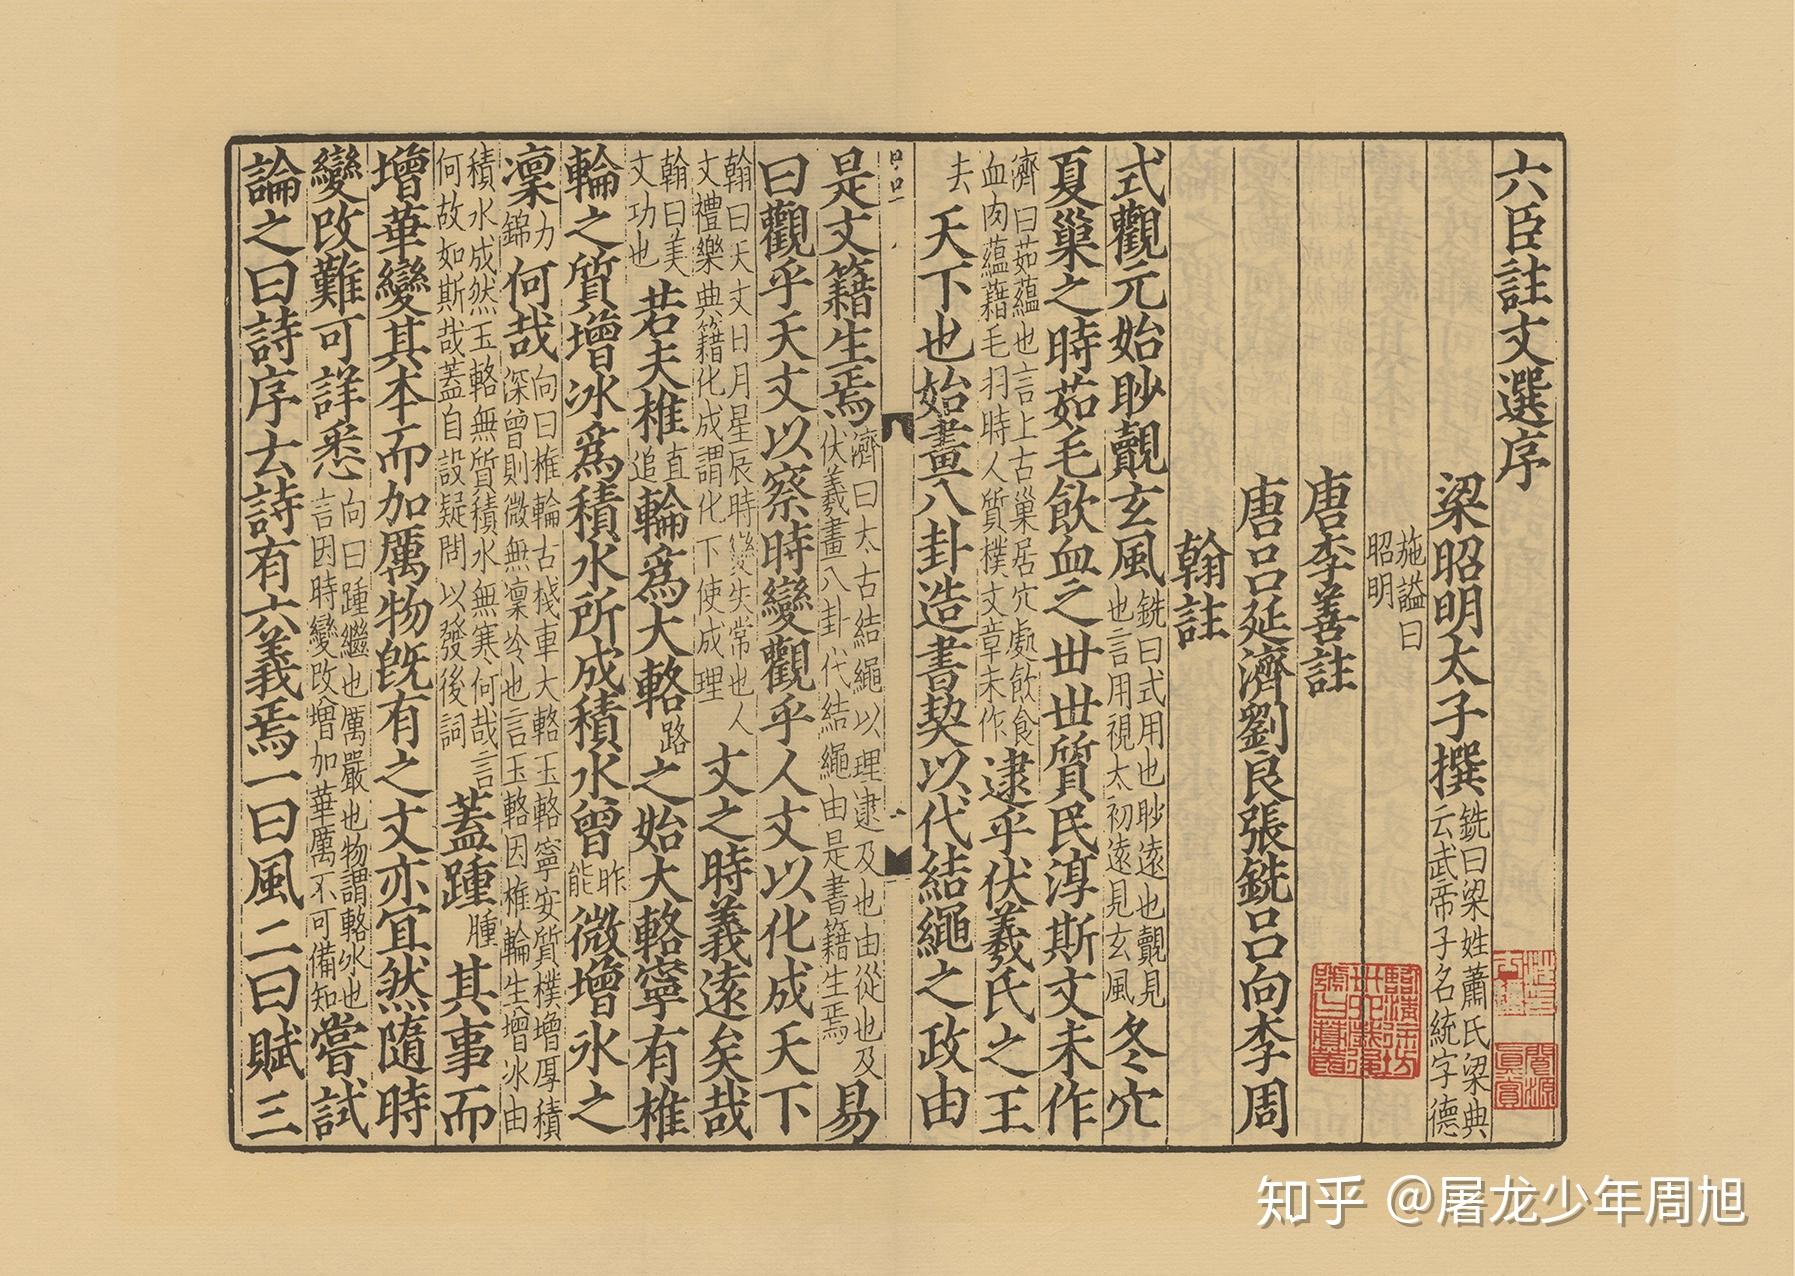 六臣註文選序
梁昭明太子撰銑曰梁姓蕭氏梁典云武帝子名統字德
施謚曰昭明
唐李善註
唐呂延濟劉良張銑呂向李周
翰註
式觀元始眇覿玄風銑曰式用也眇遠也覿見也言用視太初遠見玄風冬穴
夏巢之時茹毛飲血之世世質民淳斯文未作
濟曰茹蘊也言上古巢居穴處飲食血肉蘊藉毛羽時人質樸文章未作逮乎伏羲氏之王
去天下也始畫八卦造書契以代結繩之政由
是文籍生焉濟曰太古結繩以理逮及也由從也及伏羲畫八卦代結繩由是書籍生焉易
曰觀乎天文以察時變觀乎人文以化成天下
翰曰天文日月星辰時變失常也人文禮樂典籍化成謂化下使成理文之時義遠矣哉
翰曰美文功也若夫椎直追輪為大輅路之始大輅寧有椎
輪之質增冰為積水所成積水曾昨能微增冰之
凜力錦何哉向曰椎輪古棧車大輅玉輅寧安質樸增厚積深曾則微無凜冷也言玉輅因椎輪生增冰由
積水成然玉輅無質積水無寒何哉言何故如斯哉蓋自設疑問以發後詞蓋踵腫其事而
增華變其本而加厲物旣有之文亦宜然隨時
變改難可詳悉向曰踵繼也厲嚴也物謂輅冰也言因時變改增加華厲不可備知嘗試
論之曰詩序云詩有六義焉一曰風二曰賦三
知乎 @屠龙少年周旭